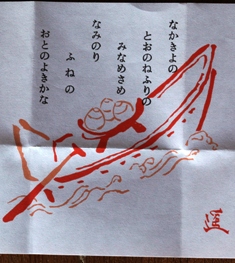 なかきよの
とおのねふりの
みなめさめ
なみのり
ふねの
おとのよきかな